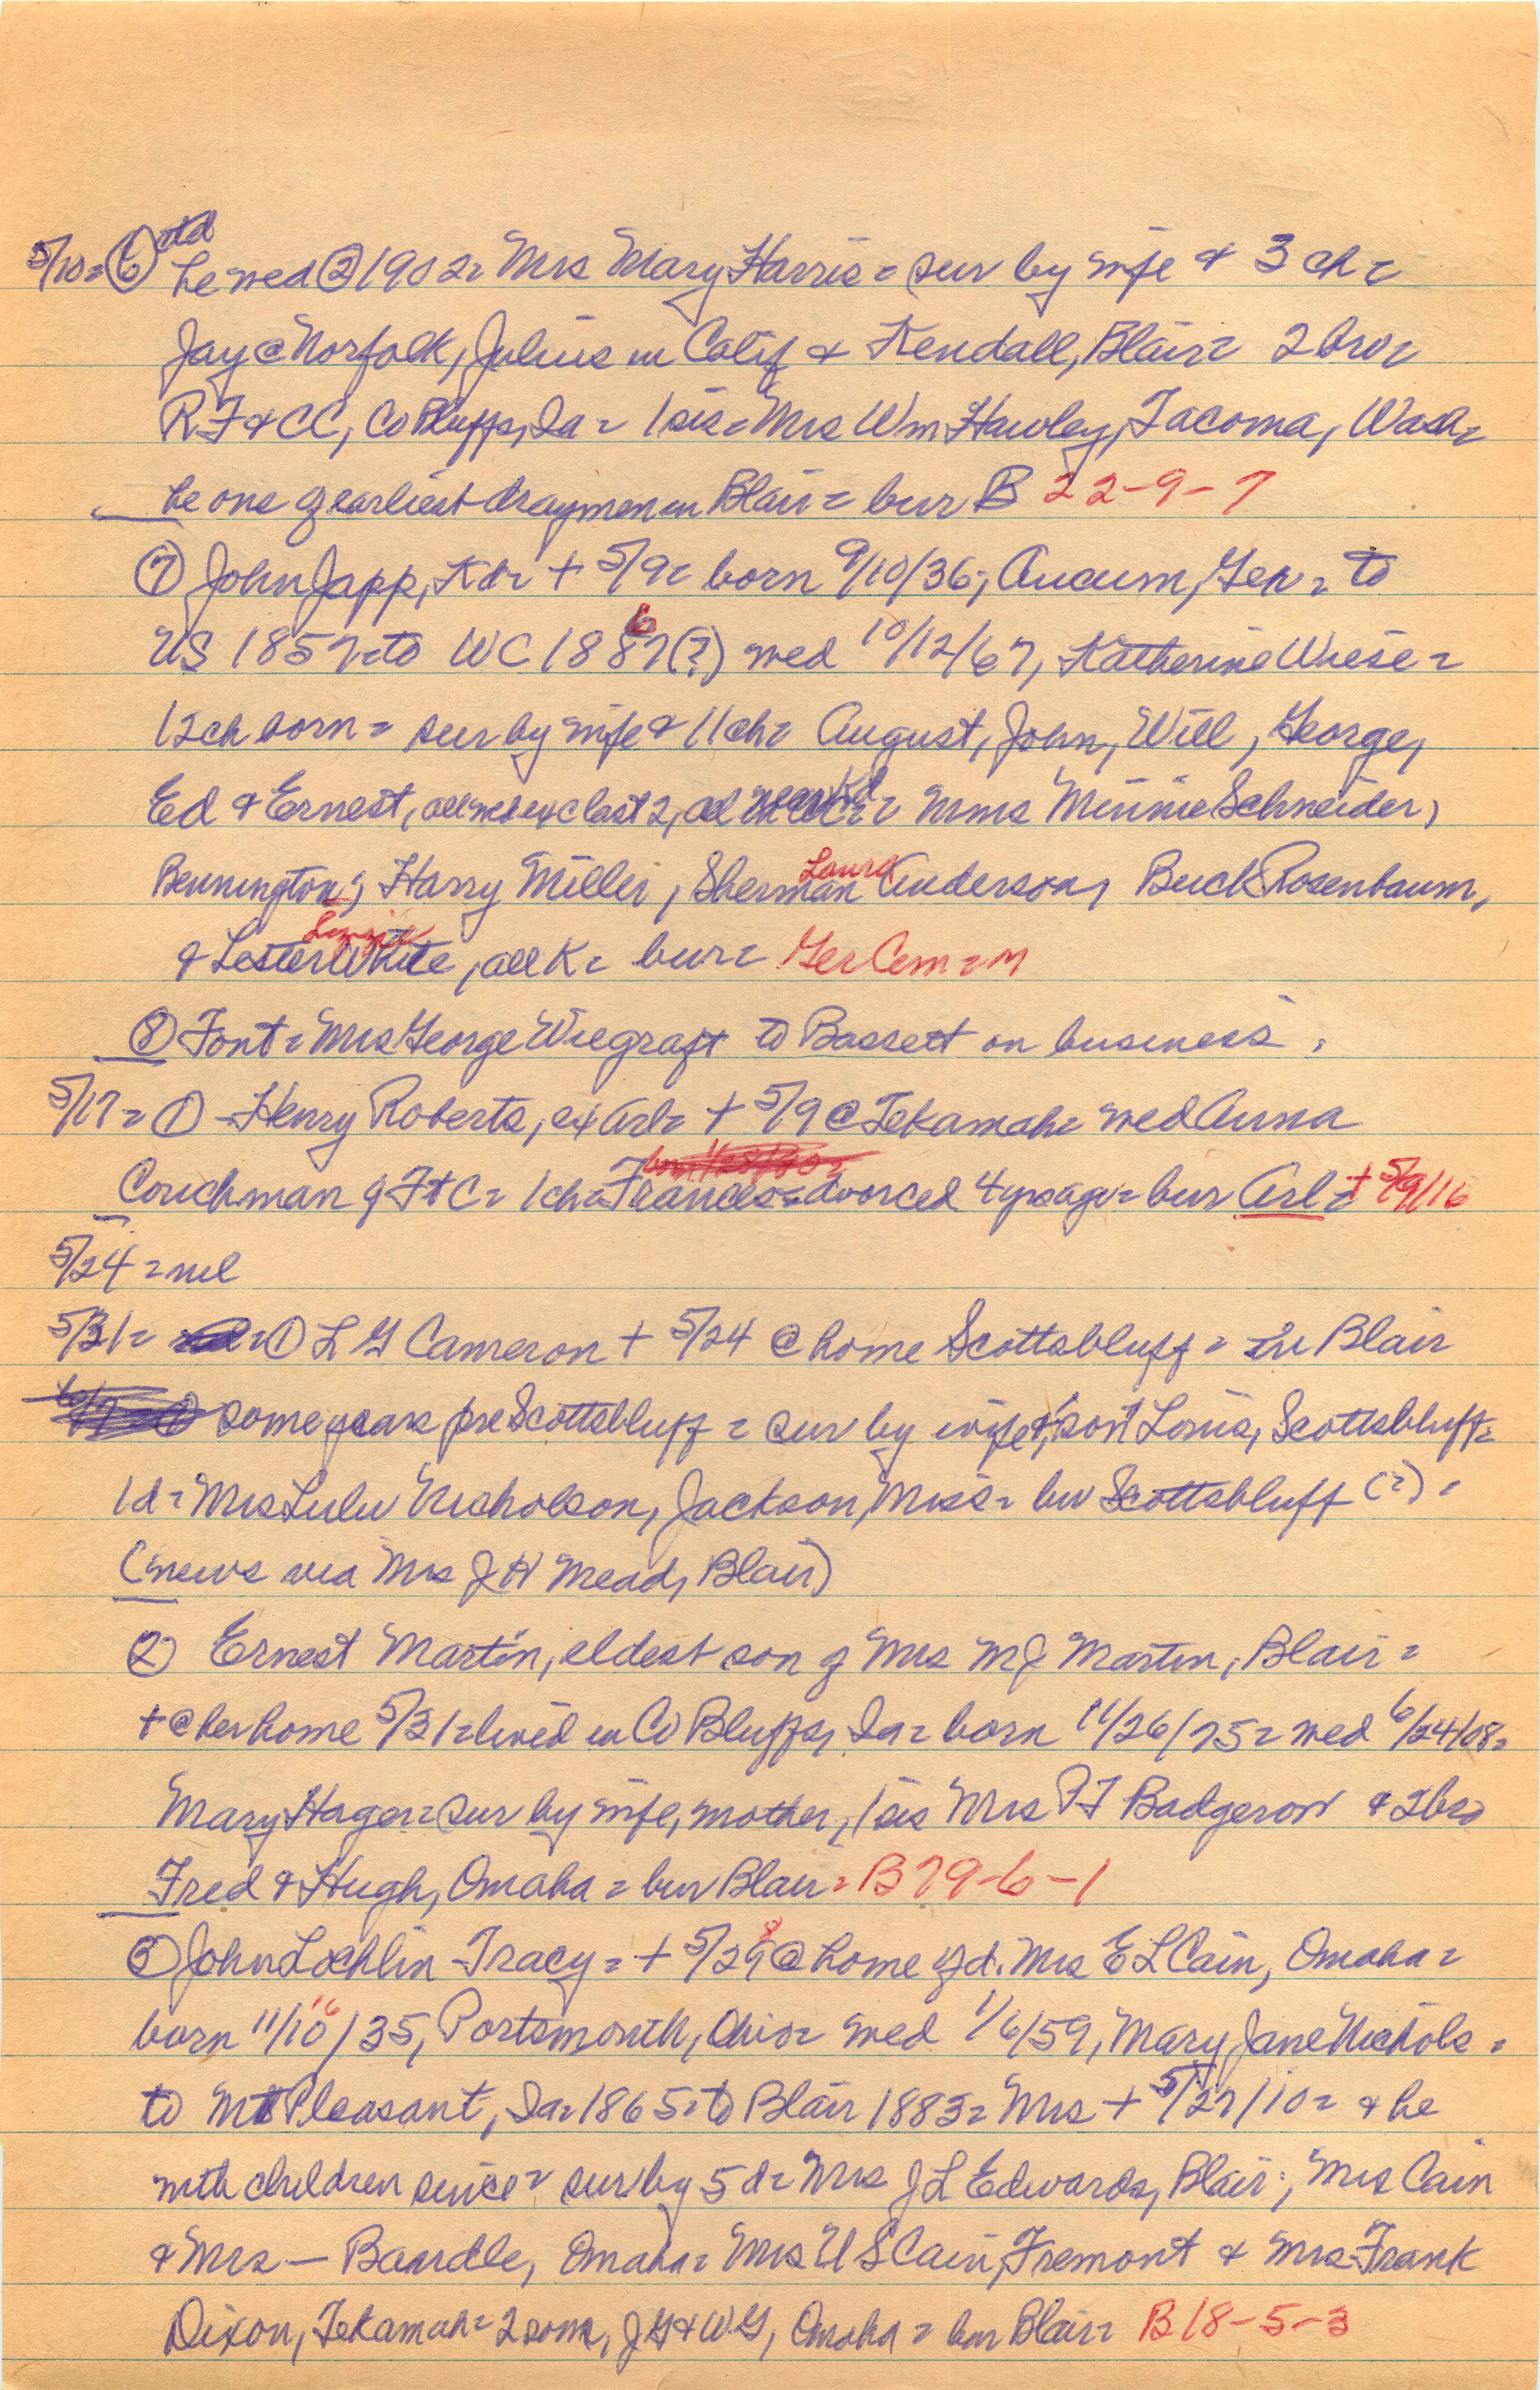 5/10= ⑥ ctd he wed ② 1902= Mrs Mary Harris = sur by wife & 3 ch =
Jay @ Norfolk, Julius in Calif & Kendall, Blair= 2 bro=
RF & CC, Co Bluffs, Ia = 1 sis = Mrs Wm Hawley, Tacoma, Wash=
he one of earliest draymen in Blair = bur B 22-9-7
⑦ John Japp, K dr + 5/9= born 9/10/36, Ger = to
US 1857= to WC 1887(?) 6 wed 10/12/67, Katherine Wiese =
12 ch born = sur by wife & 11 ch= August, John, Will, George,
Ed & Ernest, all wed exc last 2, all = Mms Minnie Schneider,
Bennington; Harry Miller, Sherman Laura Anderson, Buck Rosenbaum,
& Lester White, all K = bur = Ger Cem = M
⑧ Font = Mrs George Wiegraft to Bassett on business.
5/17= ① Henry Roberts, ex Arl= + 5/9 @ Tekamah= wed Anna
Couchman of Ft C= 1 ch = Frances = divorced 4 yrs ago = bur Arl = + 5/9/16
5/24 = nil
5/31= = ① L G Cameron + 5/24 @ home Scottsbluff = in Blair
some years pre Scottsbluff = sur by wife & 1 son Louis, Scottsbluff=
1 d = Mrs Lulu Nicholson, Jackson, Miss = bur Scottsbluff (?) =
(news via Mrs J H Mead, Blair)
② Ernest Martin, eldest son of Mrs M J Martin, Blair =
+ @ her home 5/31= lived in Co Bluffs, Ia = born 11/26/75= wed 6/24/08=
Mary Hager= sur by wife, mother, 1 sis Mrs Badgerow & 2 bro
Fred & Hugh, Omaha = bur Blair = B 79-6-1
③ John Lochlin Tracy = + 5/29 8 @ home of d. Mrs E L Cain, Omaha =
born 11/10 16/35, Portsmouth, Ohio= wed 1/6/59, Mary Jane Nichols =
to Mt Pleasant, Ia= 1865= to Blair 1883= Mrs + 5/27/10= & he
with children since = sur by 5 d= Mrs J L Edwards, Blair; Mrs Cain
& Mrs — Bandle, Omaha= Mrs U S Cain, Fremont & Mrs Frank
Dixon, Tekamah= 2 sons, J G & W G, Omaha = bur Blair= B 18-5-3